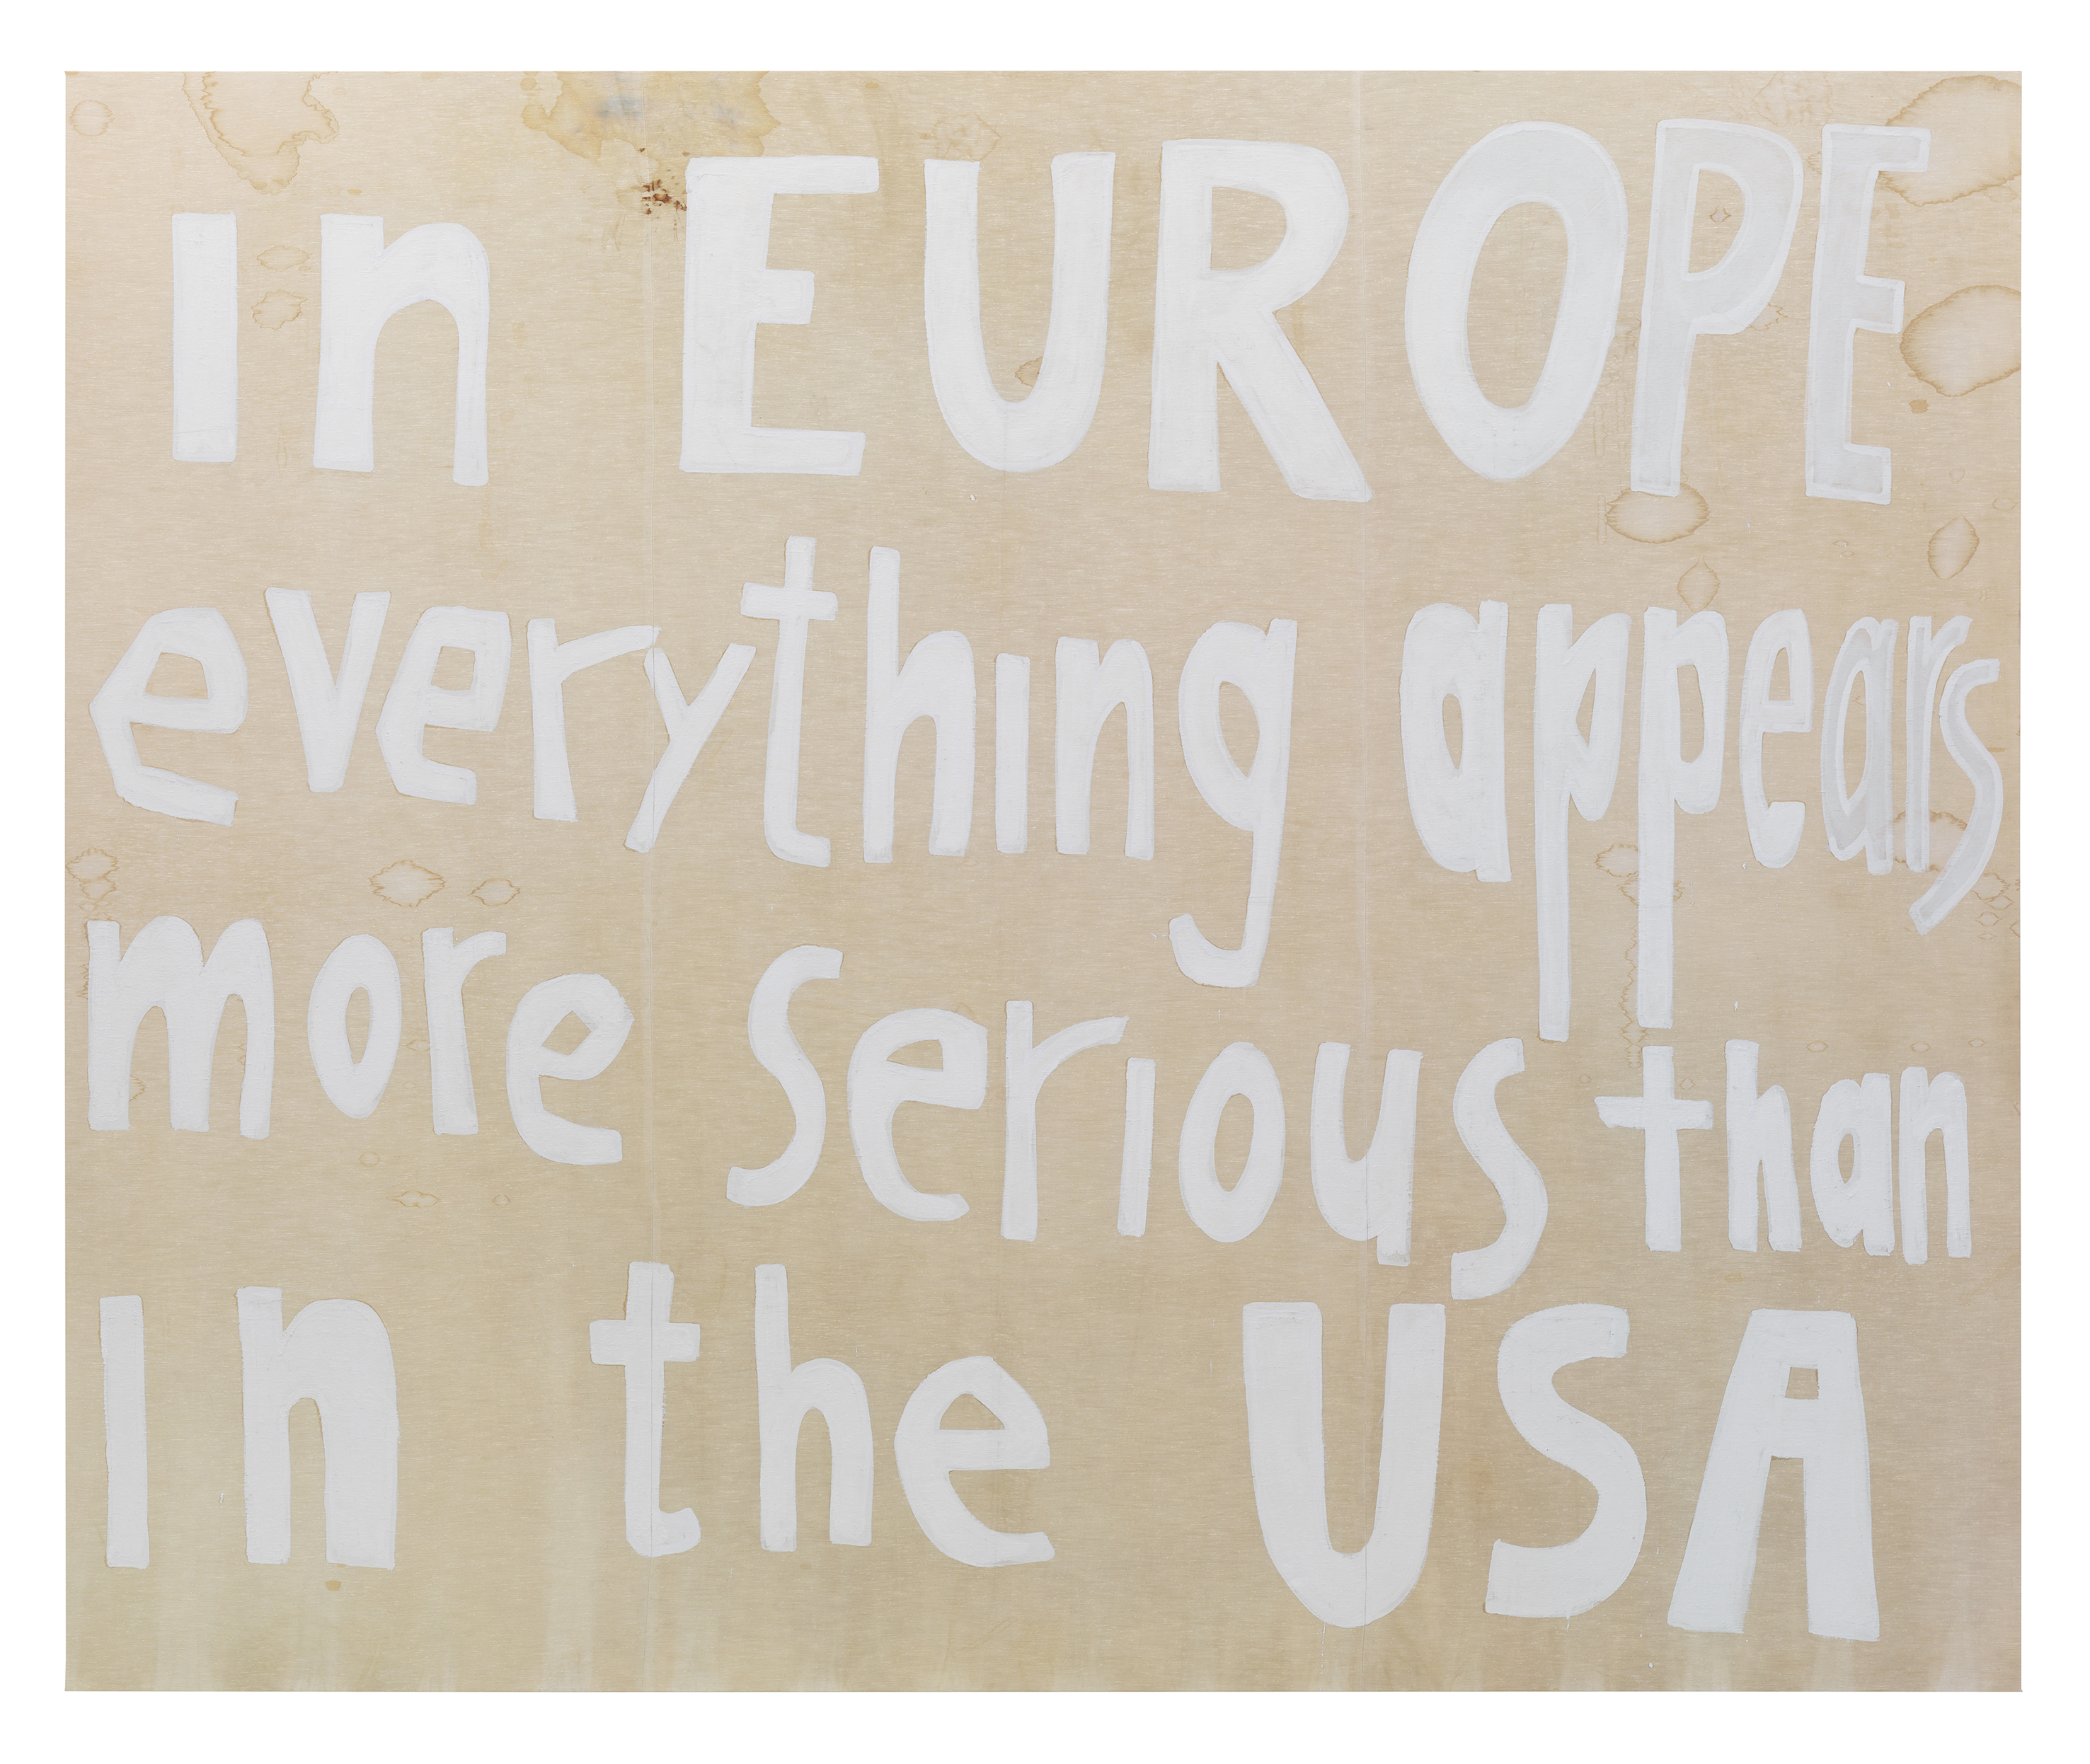 in EUROPE
everything appears
more serious than
in the USA